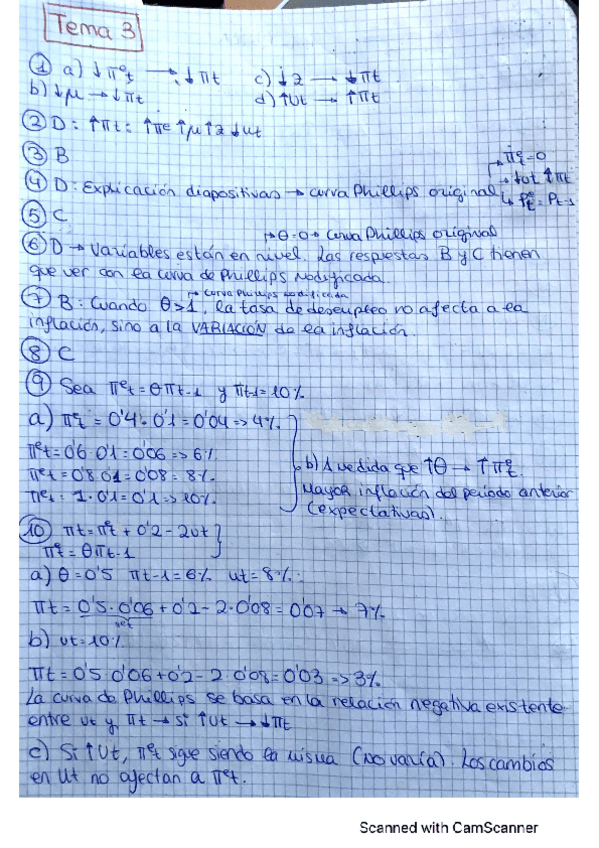 Tema 3
① a) ↓πᵉt → ↓πt c) ↓z → ↓πt
b) ↓μ → ↓πt d) ↑ut → ↑πt
② D: ↑πt: ↑πe ↑μ ↑z ↓ut
③ B
→ πᵉt=0
④ D: Explicación diapositivas → curva Phillips original → ↓ut ↑πt
↳ Pᵉt = Pt-1
⑤ C
→ θ=0 → Curva Phillips original
⑥ D → Variables están en nivel. Las respuestas B y C tienen
que ver con la curva de Phillips Modificada.
→ Curva Phillips modificada
⑦ B: Cuando θ>1, la tasa de desempleo no afecta a la
inflación, sino a la VARIACIÓN de la inflación.
⑧ C
⑨ Sea πᵉt = θπt-1 y πt-1 = 10%
a) πᵉt = 0'4·0'1 = 0'04 => 4%
πᵉt = 0'6·0'1 = 0'06 => 6%
πᵉt = 0'8·0'1 = 0'08 = 8%
πᵉt = 1·0'1 = 0'1 => 10%
b) A medida que ↑θ → ↑πᵉt.
Mayor inflación del periodo anterior
(expectativas).
⑩ πt = πᵉt + 0'2 - 2ut
πᵉt = θπt-1
a) θ = 0'5 πt-1 = 6% ut = 8%
πt = 0'5·0'06 + 0'2 - 2·0'08 = 0'07 → 7%
πᵉt
b) ut = 10%
πt = 0'5·0'06 + 0'2 - 2·0'08 = 0'03 => 3%
La curva de Phillips se basa en la relación negativa existente
entre ut y πt → si ↑ut → ↓πt
c) Si ↑ut, πᵉt sigue siendo la misma (No varía). Los cambios
en ut no afectan a πᵉt.
Scanned with CamScanner